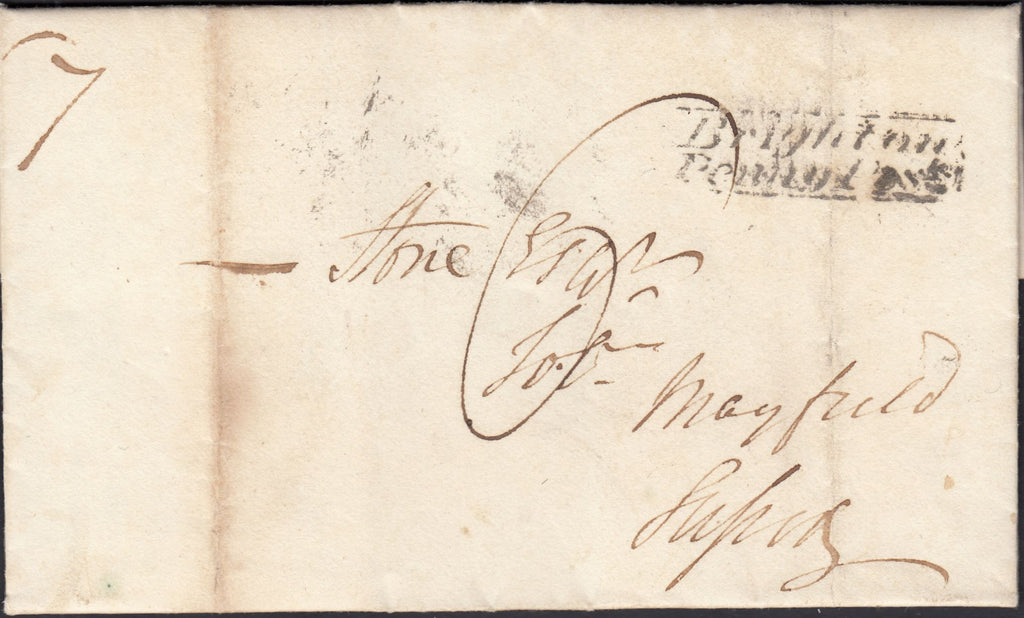 7
Brighton
Penny Post
— Stone Esqr
Solr
Mayfield
Sussex